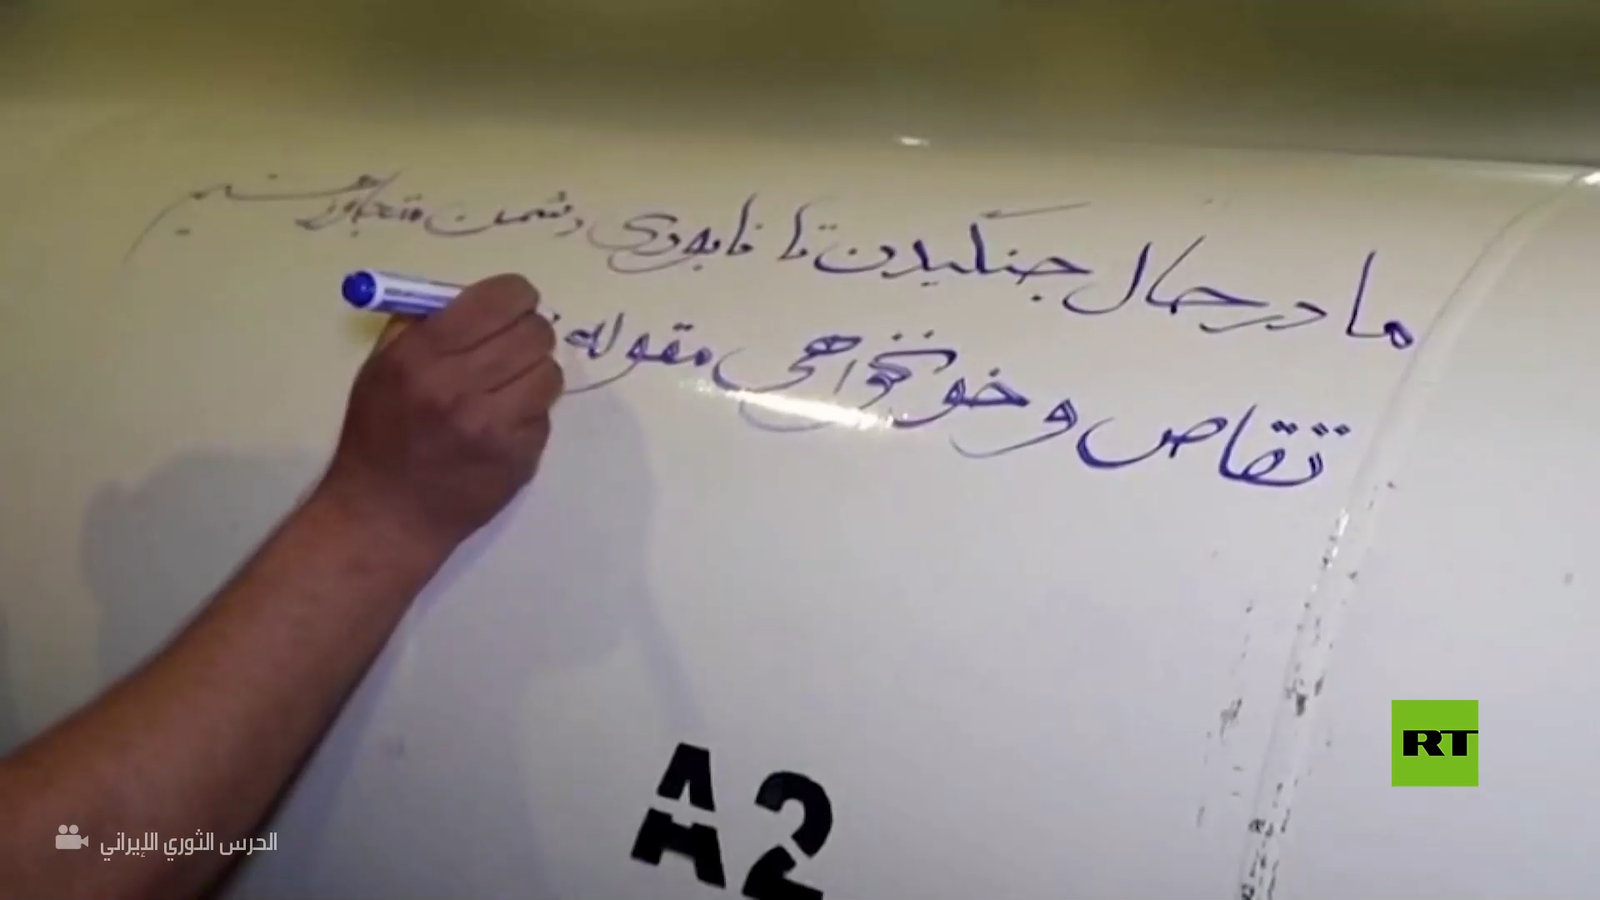 ما در حال جنگیدن تا نابودی دشمن متجاوز هستیم
تقاص و خونخواهی مقوله
A2
RT
الحرس الثوري الإيراني